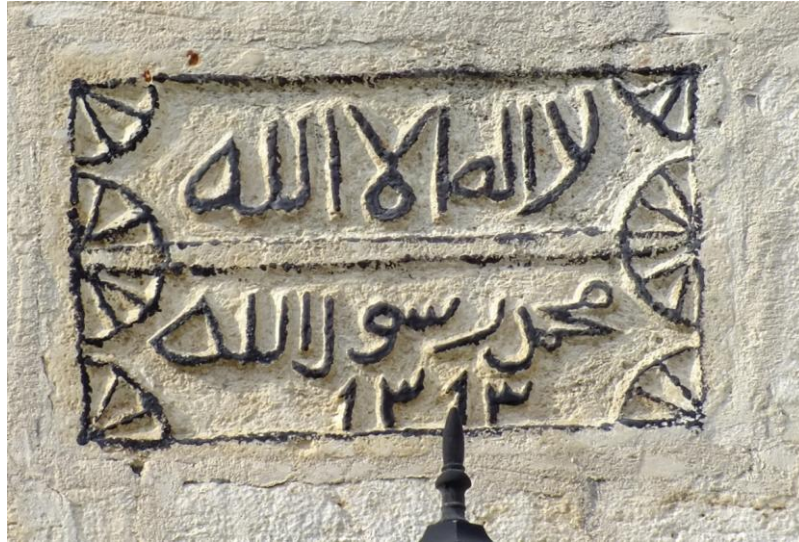 لا اله الا الله
محمد رسول الله
١٣١٣